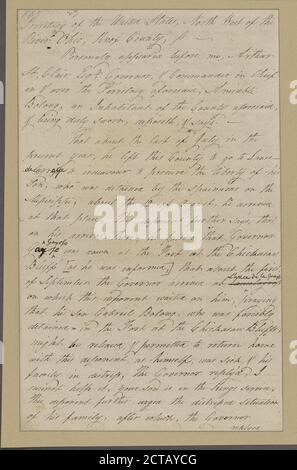 Territory of the United States, North West of the
River Ohio, Knox County, ss
Personaly appeared before me, Arthur
St. Clair Esqr. Governor, & Commander in Chief
in & over the Territory aforesaid, Amiable
Bolong, an Inhabitant of the County aforesaid
& being duly sworn, deposeth & says.
That about the last of July in the
present year, he left this County to go to
to endeavour to procure the liberty of his
Son, who was detained by the Spaniards on the
Mississippi, about the he arrived
at that place, the deponent further says, that
on his arrival that Governor
Gayoso was down at the Fort at the Chickasaw
Bluffs [as he was informed] that about the first
of September the Governor arrived at
on which this deponent waited on him, praying
that his Son Gabriel Bolong, who was forcibly
detained in the Fort at the Chickasaw Bluffs,
might be released, & permitted to return home
with this deponent, as himself was Sick & his
family in distress, the Governor replied, I
cannot help it, your Son is in the Kings Service,
this deponent further urged the distressed situation
of his family, after which, the Governor
replied
alamy
Image ID: 2CTAYCG
www.alamy.com